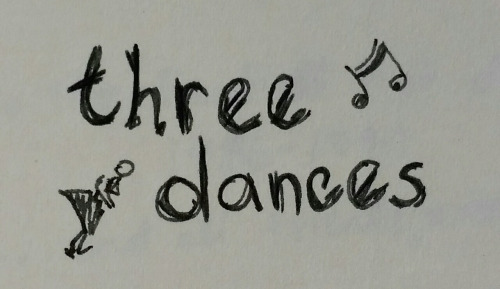 three
dances